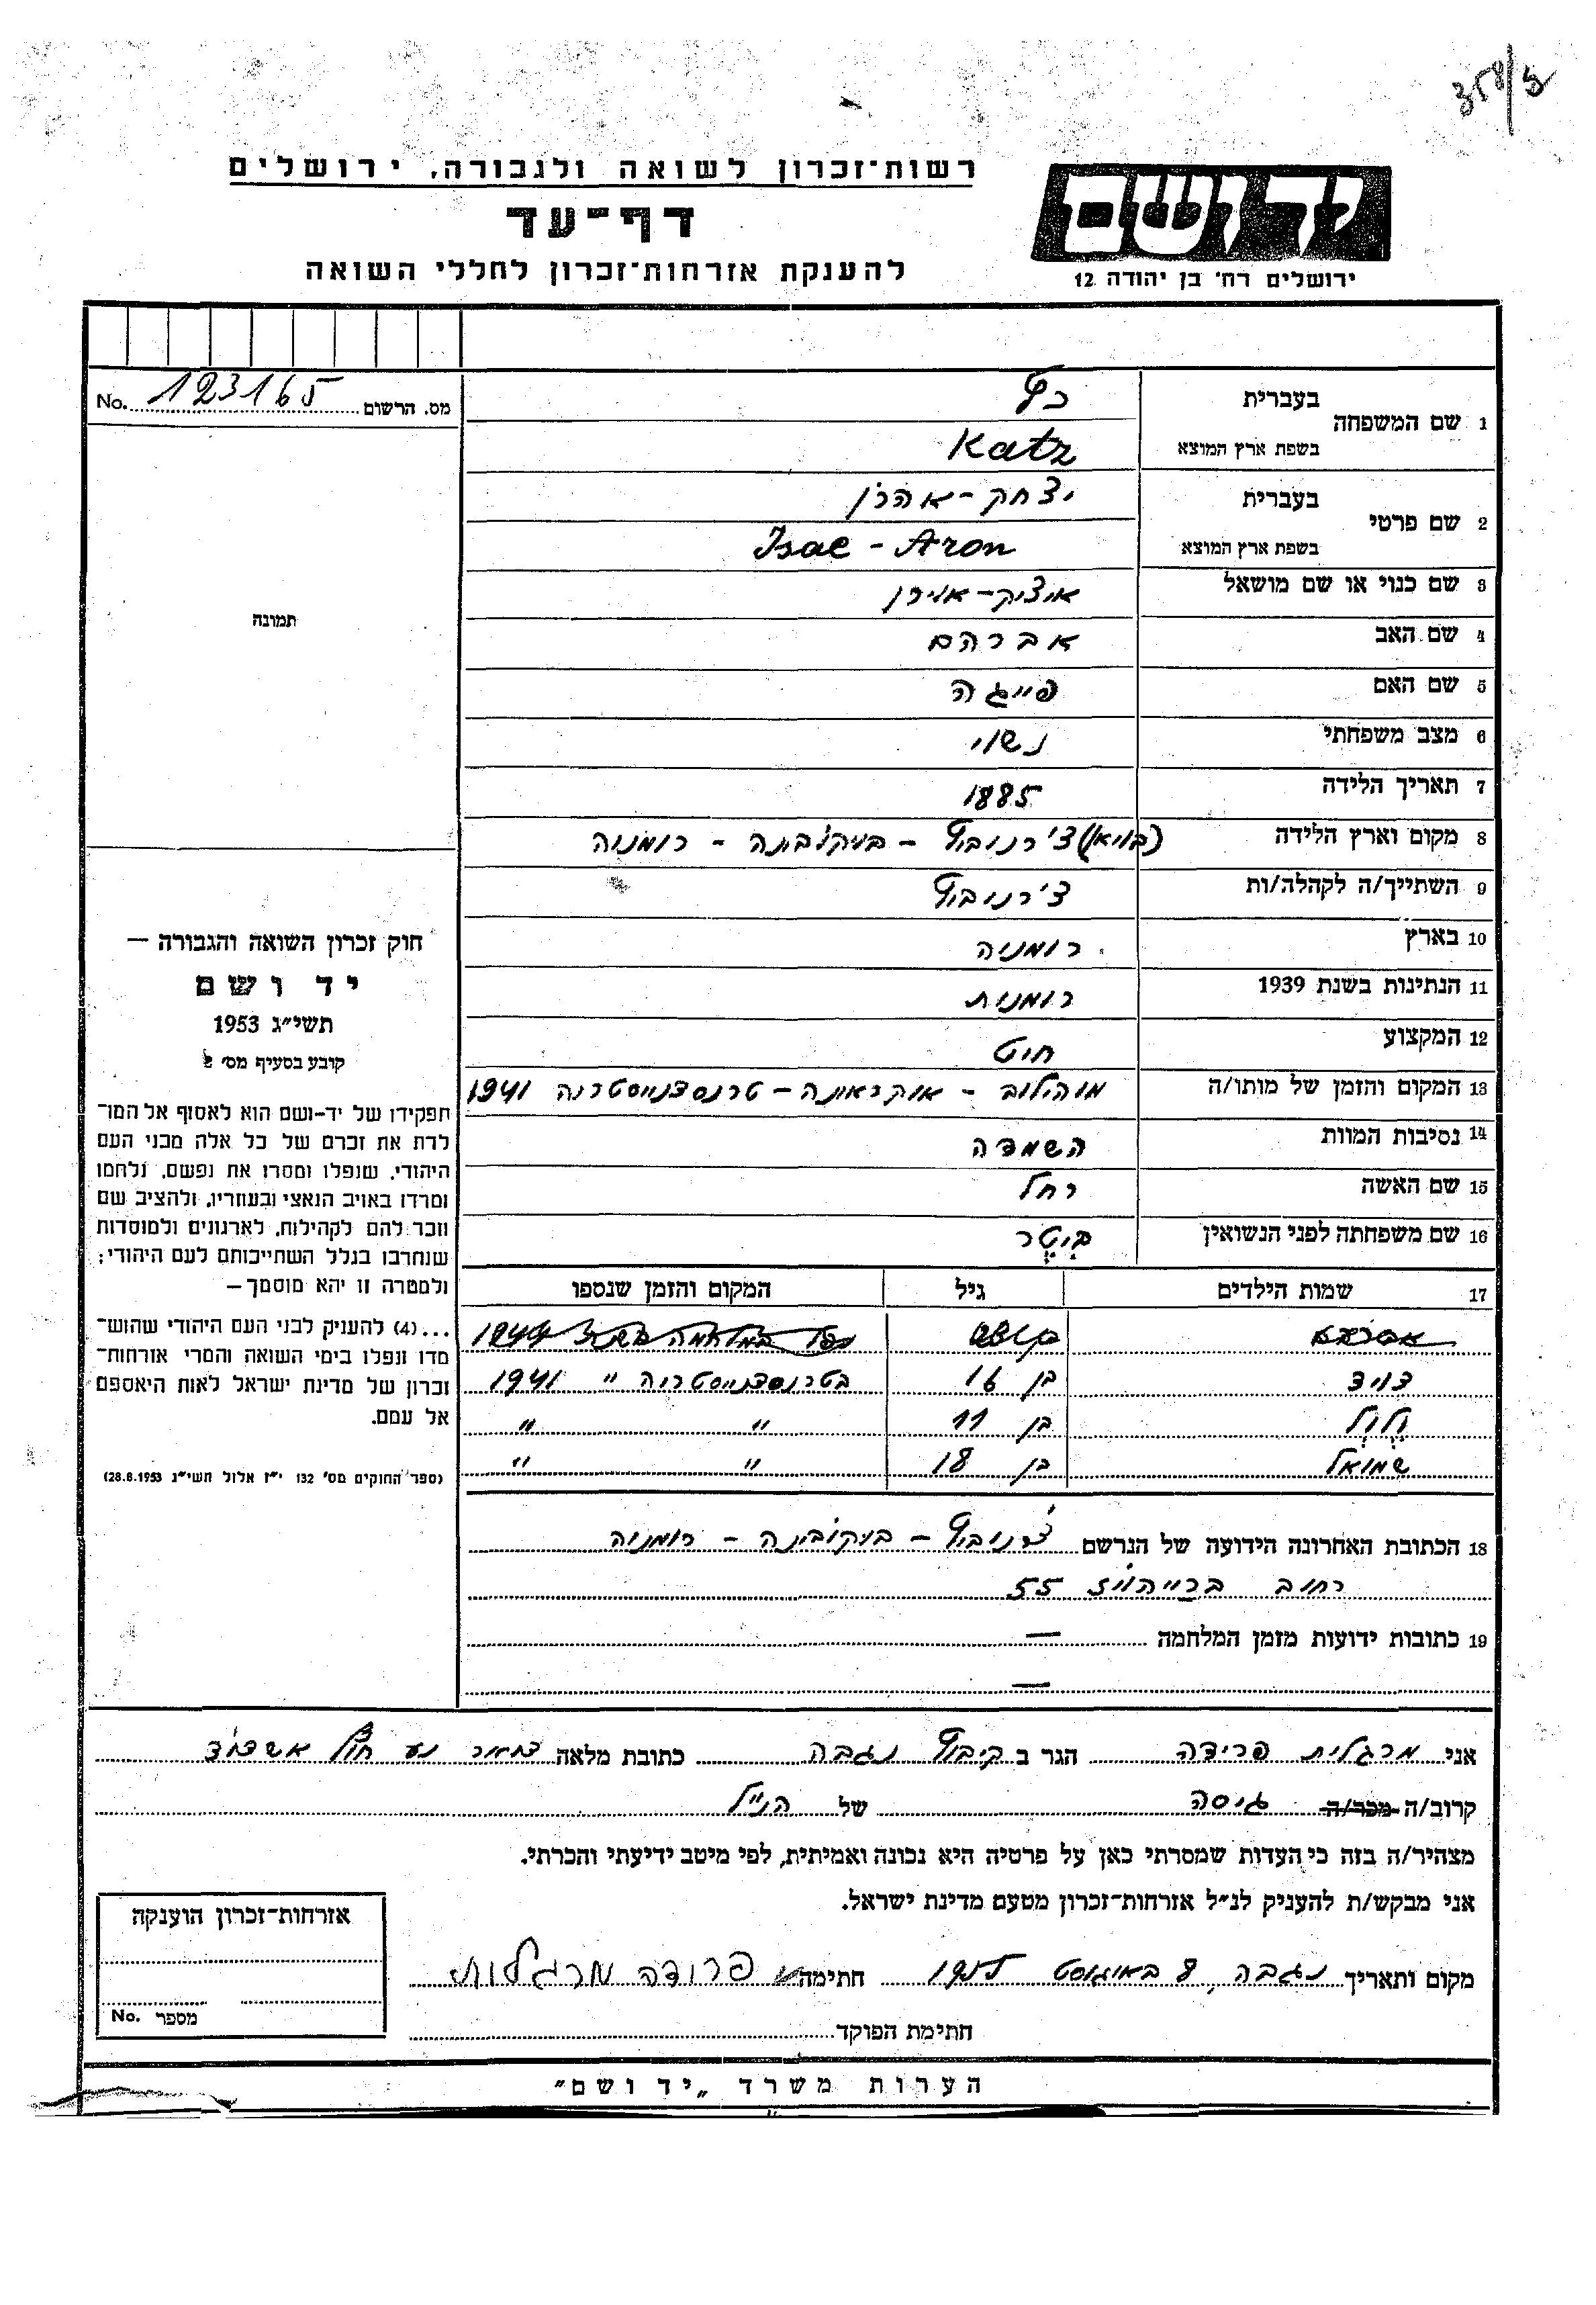 358/5
רשות־זכרון לשואה ולגבורה, ירושלים
יד ושם
דף־עד
ירושלים רח' בן יהודה 12
להענקת אזרחות־זכרון לחללי השואה
מס. הרשום 123165 No.
1 שם המשפחה בעברית כץ
בשפת ארץ המוצא Katz
2 שם פרטי בעברית יצחק-אהרן
בשפת ארץ המוצא Isac - Aron
3 שם כנוי או שם מושאל איציק-אירן
4 שם האב אברהם
5 שם האם פייגה
6 מצב משפחתי נשוי
7 תאריך הלידה 1885
8 מקום וארץ הלידה (בויאן) צ'רנוביץ - בוקובינה - רומניה
9 השתייך/ה לקהלה/ות צ'רנוביץ
10 בארץ רומניה
11 הנתינות בשנת 1939 רומנית
12 המקצוע חיט
13 המקום והזמן של מותו/ה מוהילוב - אוקראינה - טרנסדנייסטריה 1941
14 נסיבות המוות השמדה
15 שם האשה רחל
16 שם משפחתה לפני הנשואין ביטר
17 שמות הילדים גיל המקום והזמן שנספו
דויד בן 16 בטרנסדנייסטריה " 1941
וֶלוֶל בן 11 " "
שמואל בן 18 " "
18 הכתובת האחרונה הידועה של הנרשם צ'רנוביץ - בוקובינה - רומניה
רחוב 55
19 כתובות ידועות מזמן המלחמה —
—
תמונה
חוק זכרון השואה והגבורה —
יד ושם
תשי"ג 1953
קובע בסעיף מס' 2
תפקידו של יד-ושם הוא לאסוף אל המו־
לדת את זכרם של כל אלה מבני העם
היהודי, שנפלו ומסרו את נפשם, נלחמו
ומרדו באויב הנאצי ובעוזריו, ולהציב שם
וזכר להם לקהילות, לארגונים ולמוסדות
שנחרבו בגלל השתייכותם לעם היהודי;
ולמטרה זו יהא מוסמך —
...(4) להעניק לבני העם היהודי שהוש־
מדו ונפלו בימי השואה והמרי אזרחות־
זכרון של מדינת ישראל לאות היאספם
אל עמם.
(ספר החוקים מס' 132 י"ז אלול תשי"ג 28.8.1953)
אני מרגלית פרידה הגר ב קיבוץ נגבה כתובת מלאה דואר נע חוף אשדוד
קרוב/ה מכר/ה גיסה של הנ"ל
מצהיר/ה בזה כי העדות שמסרתי כאן על פרטיה היא נכונה ואמיתית, לפי מיטב ידיעתי והכרתי.
אני מבקש/ת להעניק לנ"ל אזרחות־זכרון מטעם מדינת ישראל.
מקום ותאריך נגבה, 8 באוגוסט חתימה פרידה מרגלית
חתימת הפוקד
אזרחות־זכרון הוענקה
מספר No.
הערות משרד "יד ושם"